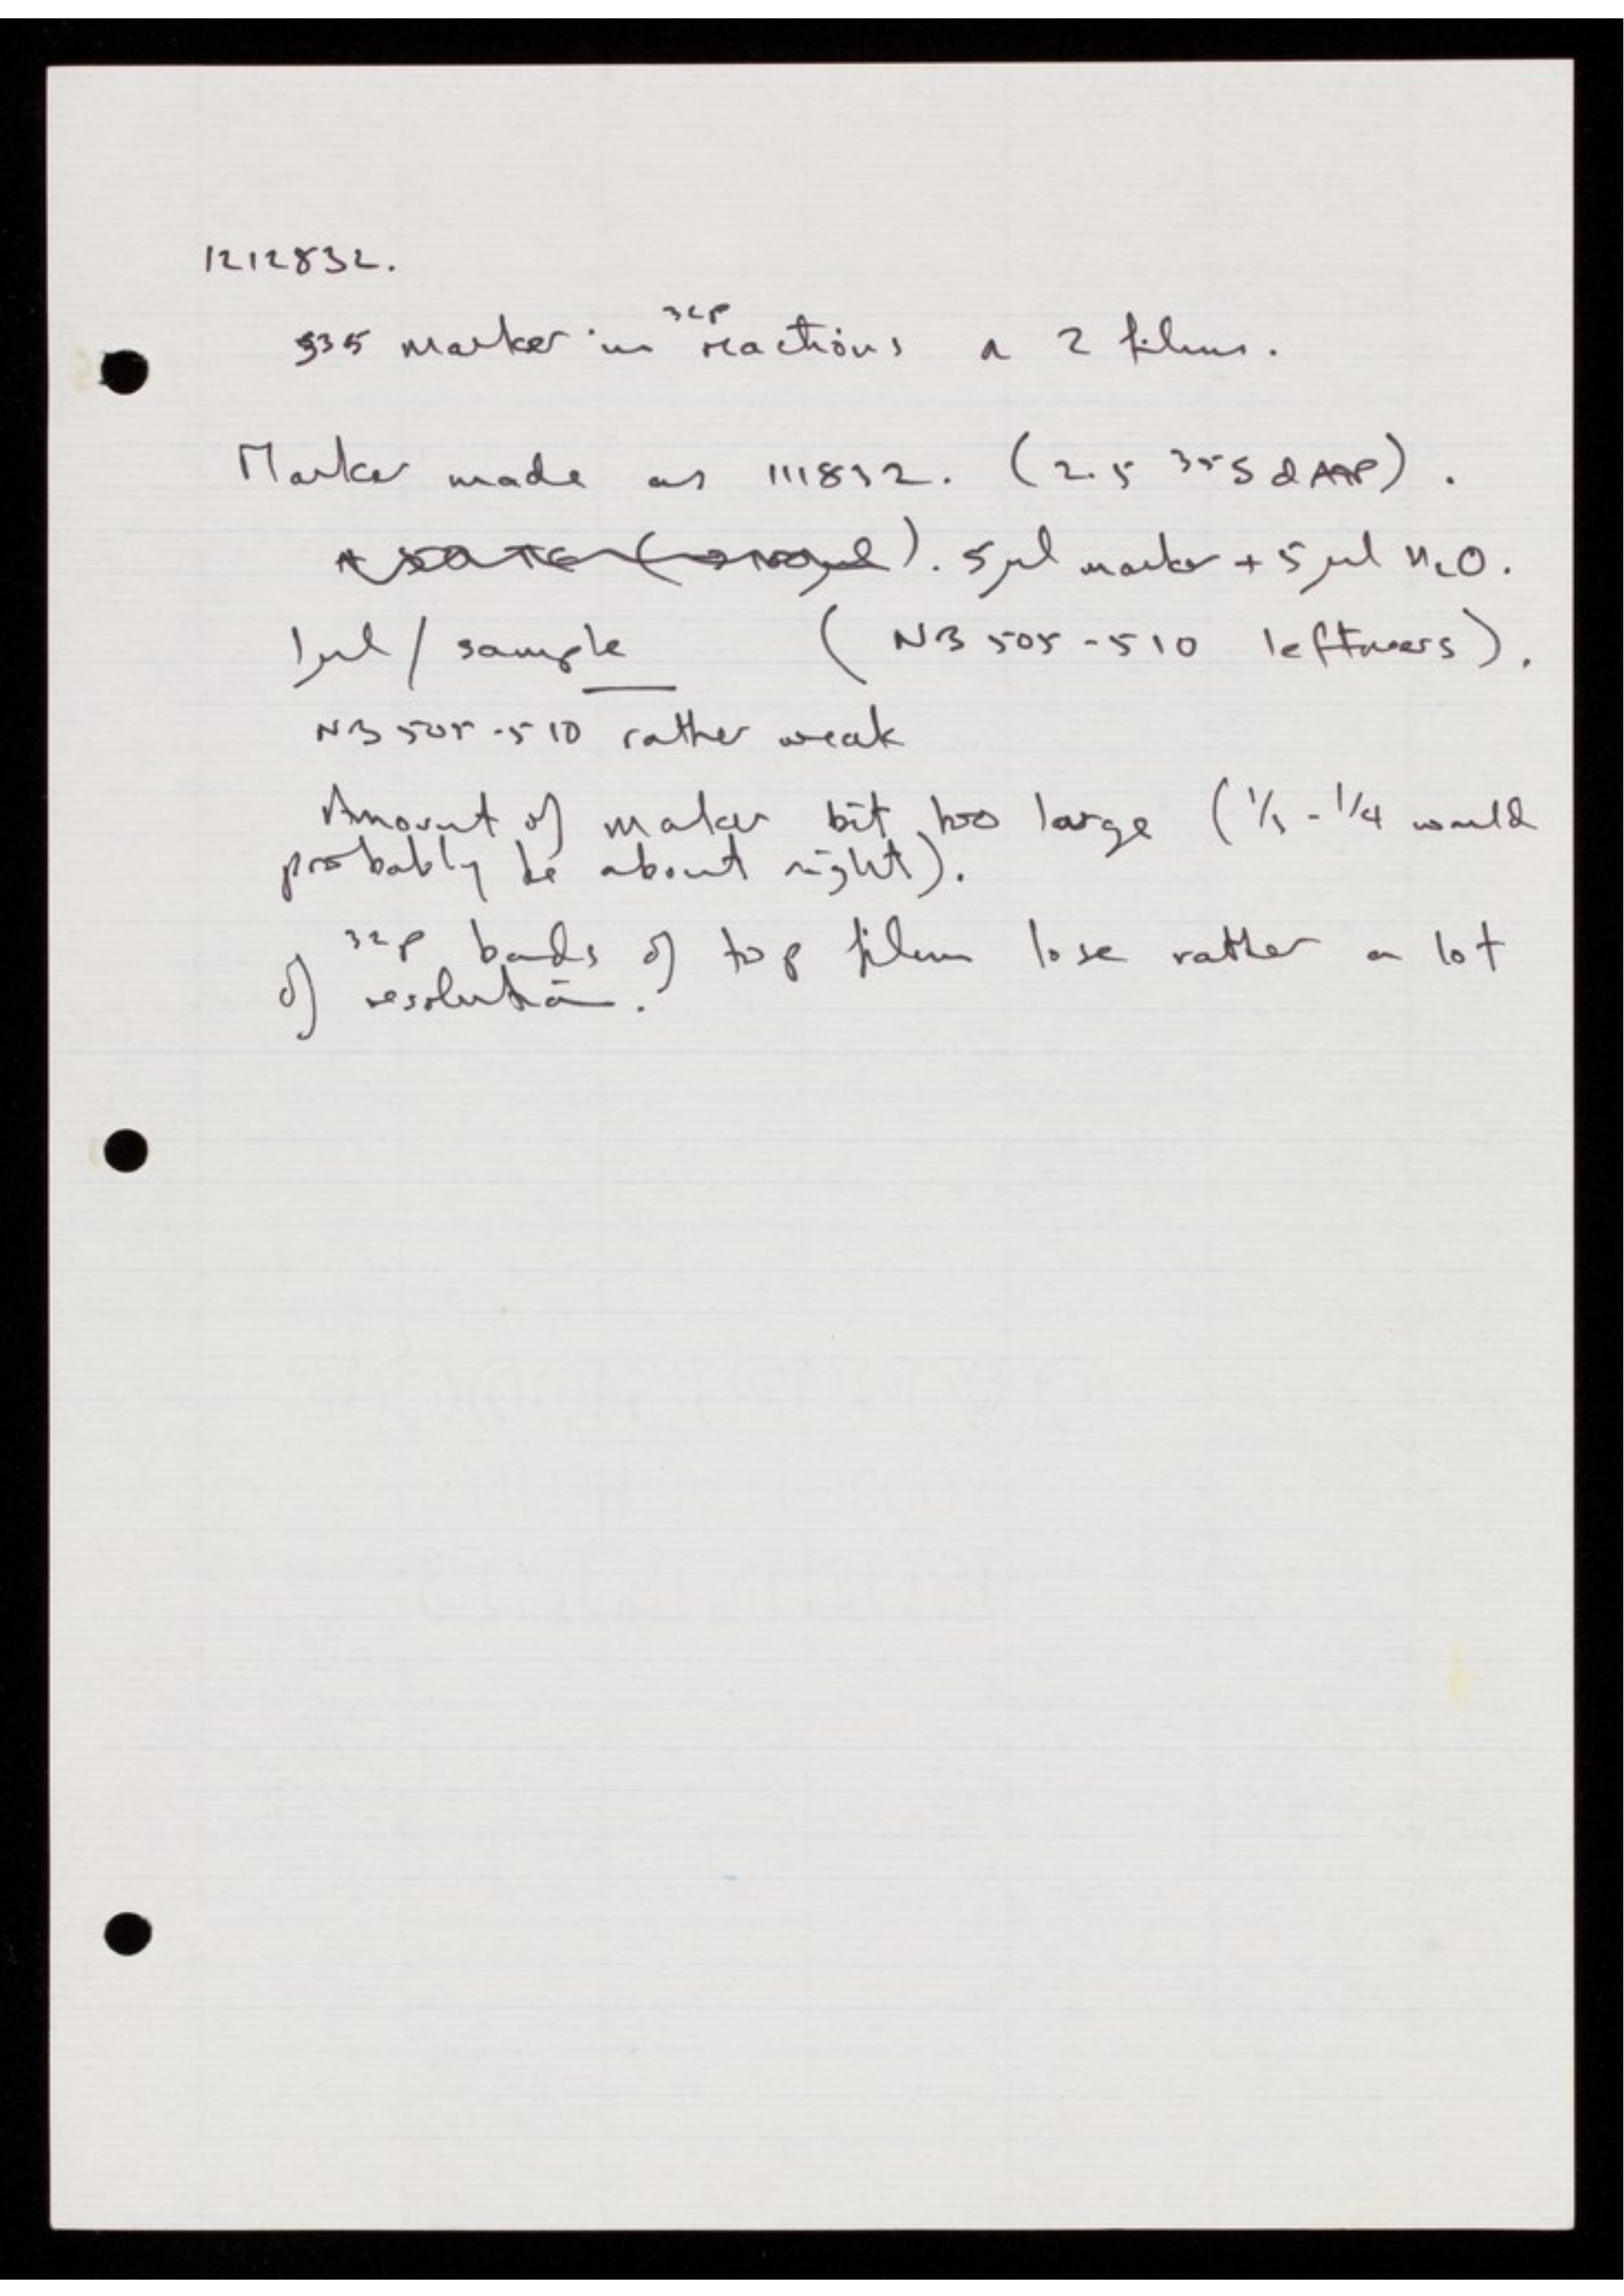 1212832.
S35 marker in 32P reactions a 2 films.
Marker made as 111832. (2.5 35S dATP).
5 µl marker + 5 µl H2O.
1 µl / sample (NB 505-510 leftovers).
NB 505-510 rather weak
Amount of marker bit too large (1/3 - 1/4 would
probably be about right).
32P bands of top film lose rather a lot
of resolution.